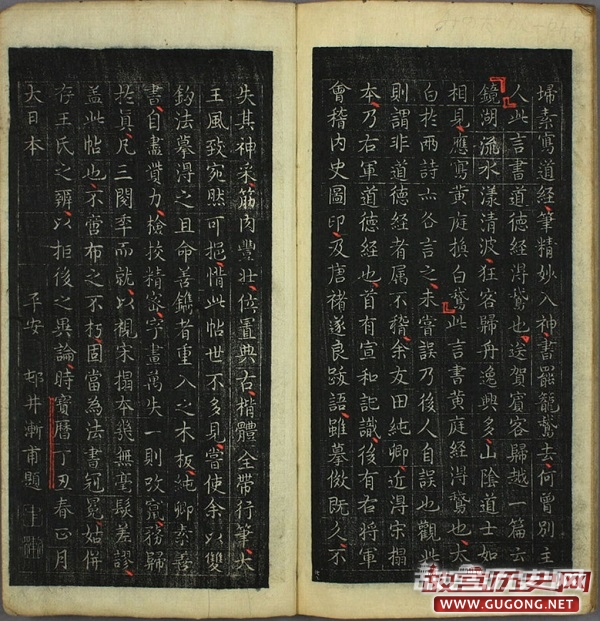 埽素寫道經筆精妙入神書罷籠鵞去何曾別主
人此言書道德經得鵞也送賀賓客歸越一篇云
鏡湖流水漾清波狂客歸舟逸興多山陰道士如
相見應寫黃庭換白鵞此言書黃庭經得鵞也太
白於兩詩亦各言之未嘗誤乃後人自誤也觀此
則謂非道德經者属不稽余友田純卿近得宋搨
本乃右軍道德經也首有宣和記識後有右將軍
會稽内史圖印及唐褚遂良跋語雖摹倣既久不
失其神采筋肉豐壯位置典古楷體全帶行筆大
王風致宛然可挹惜此帖世不多見嘗使余以雙
鈎法摹得之且命善鐫者重入之木板純卿素善
書自盡貲力撿挍精密字畫萬失一則改寘務歸
於真凡三閱季而就以覩宋搨本幾無毫髮差謬
盖此帖也不啻布之不朽固當為法書冠冕姑併
存王氏之辨以拒後之異論時寳曆丁丑春正月
大日本 平安 邨井漸甫題
故宫历史网
WWW.GUGONG.NET